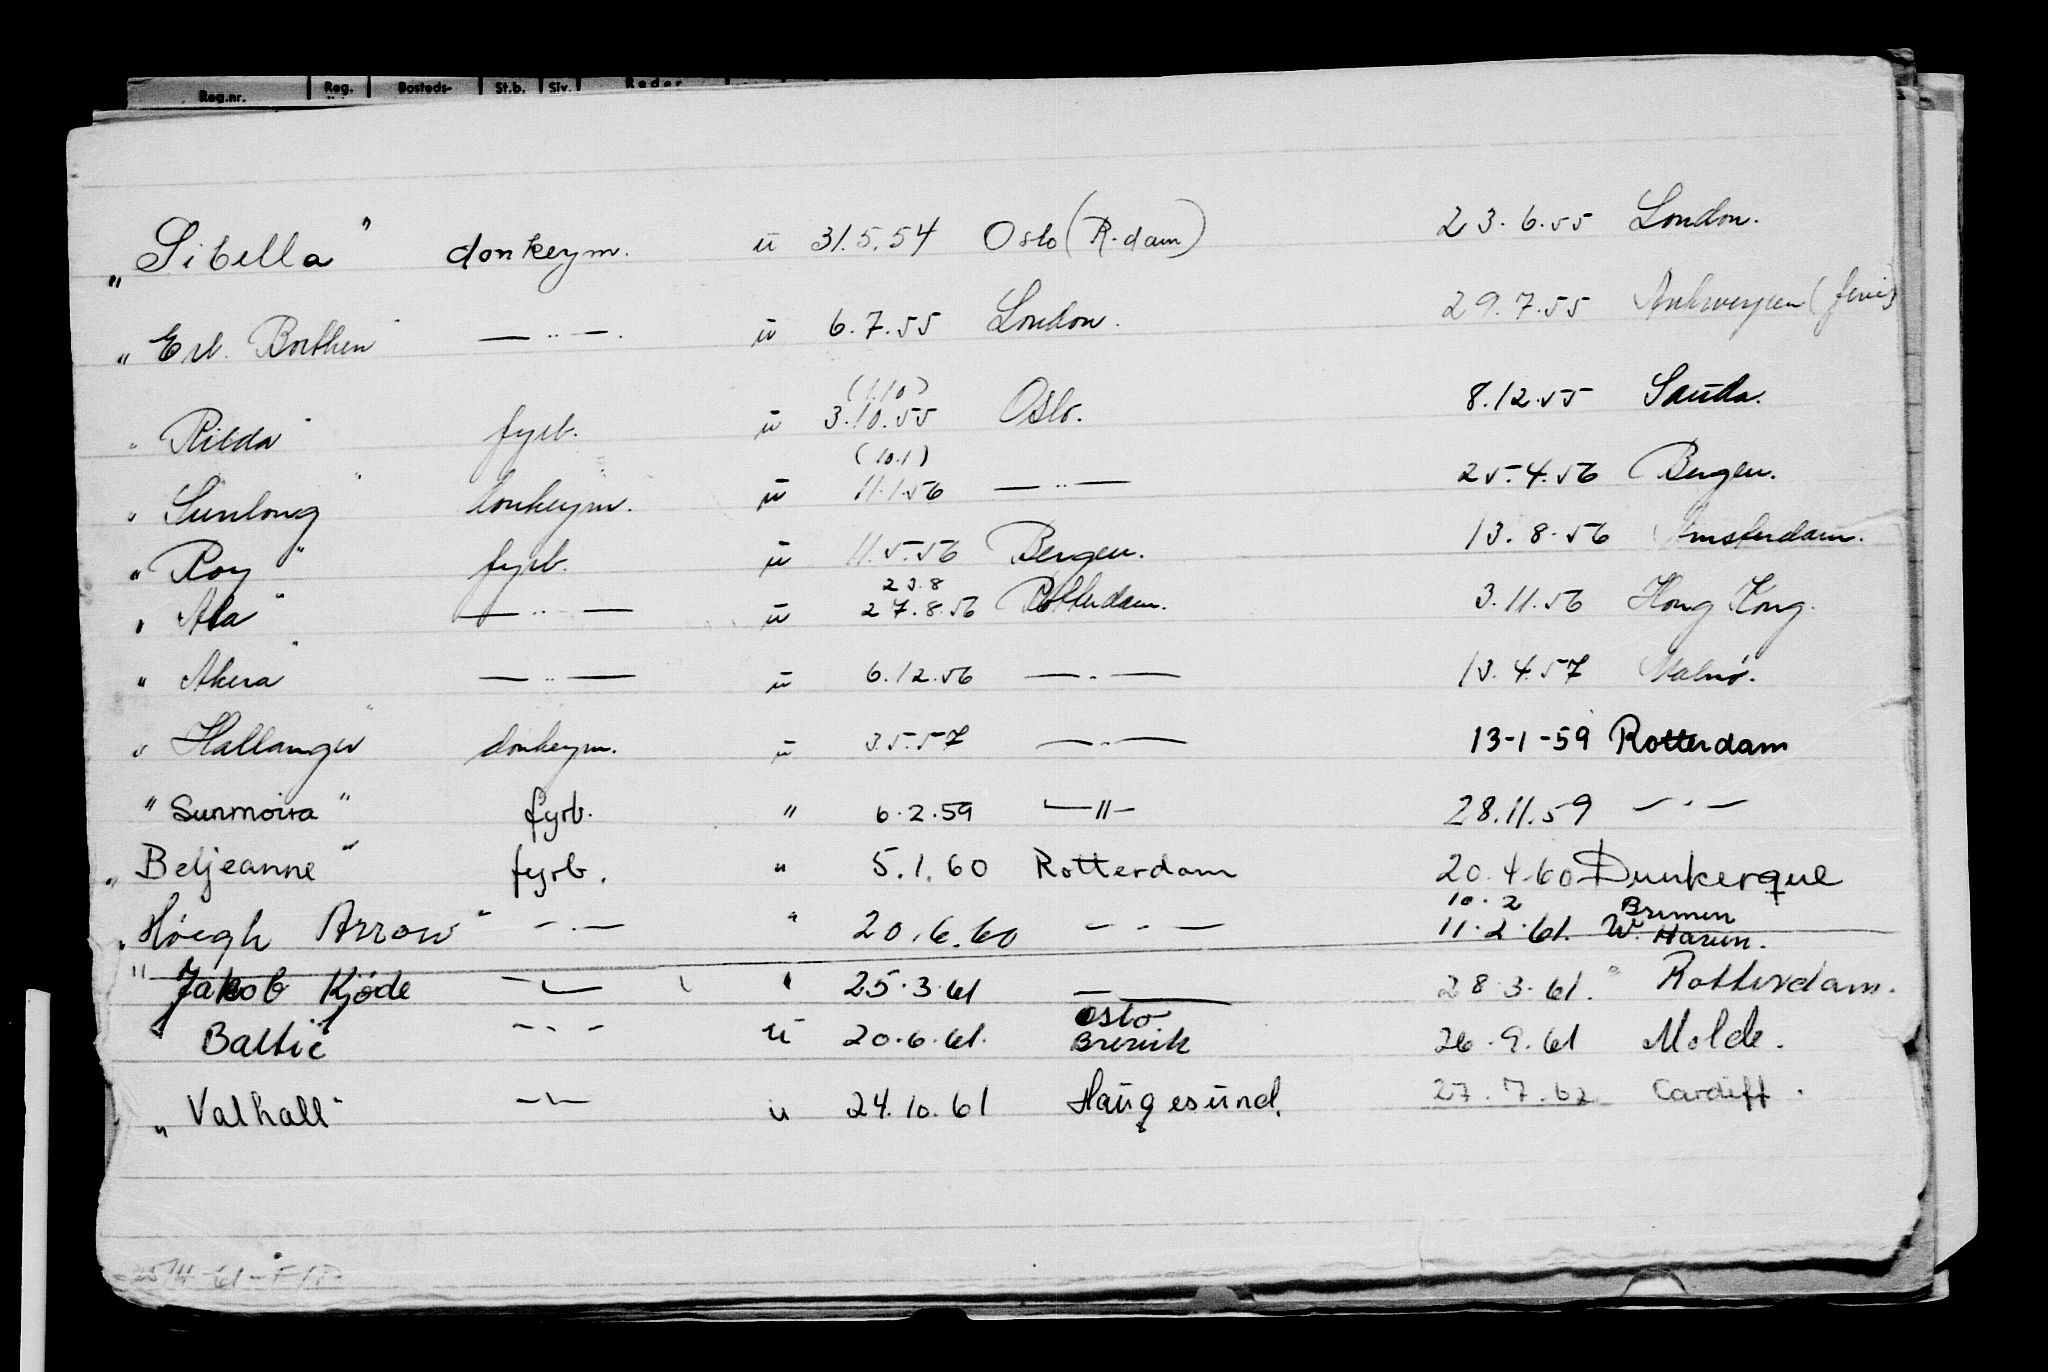 Reg.nr. Reg. Bosteds- St.b. Siv. Reder
„Sibella" donkeym. u 31.5.54 Oslo (R.dam) 23.6.55 London.
„ Erl. Borthen — .. — u 6.7.55 London. 29.7.55 Antwerpen (ferie)
(1.10)
" Rilda" fyrb. u 3.10.55 Oslo. 8.12.55 Sauda.
(10.1)
" Sunlong" donkeym. u 11.1.56 — .. — 25.4.56 Bergen.
" Roy" fyrb. u 11.5.56 Bergen. 13.8.56 Amsterdam.
23.8
" Ala" — .. — u 27.8.56 Rotterdam. 3.11.56 Hong Kong.
" Akera" — .. — u 6.12.56 — . — 13.4.57 Malmø.
" Hallanger" donkeym. u 3.5.57 — . — 13-1-59 Rotterdam
" Sunmoira" fyrb. " 6.2.59 —"— 28.11.59 — . —
„ Beljeanne" fyrb. " 5.1.60 Rotterdam 20.4.60 Dunkerque
10.2 Bremen
„ Høegh Arrow" — . — " 20.6.60 — . — 11.2.61. W. Haven.
" Jakob Kjøde — . — " 25.3.61 — . — 28.3.61. " Rotterdam.
Oslo
" Baltic — . — u 20.6.61. Brevik 26.9.61 Molde.
„ Valhall" — . — u 24.10.61 Haugesund. 27.7.62 Cardiff.